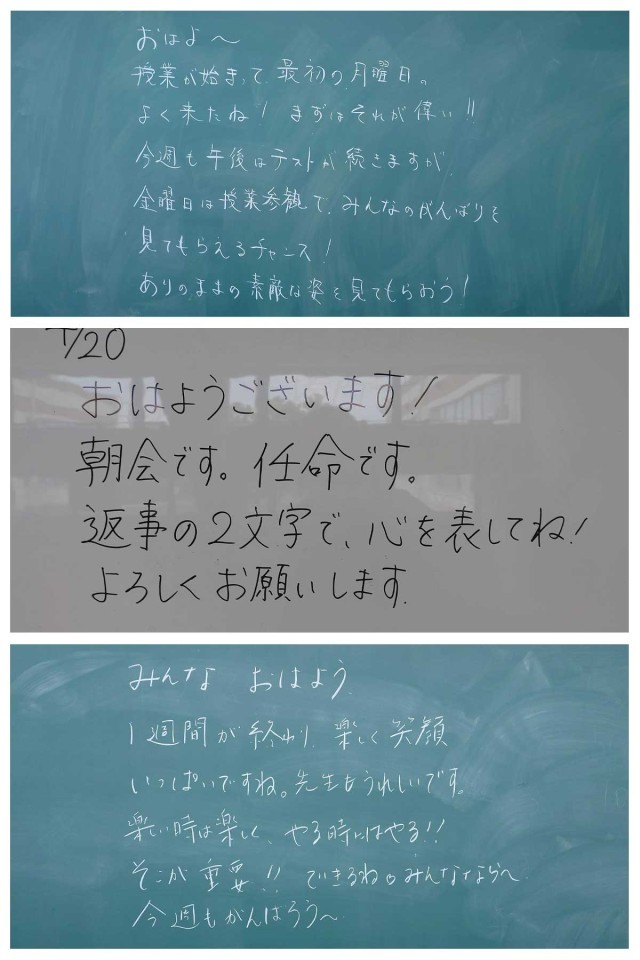 おはよ〜
授業が始まって最初の月曜日。
よく来たね！まずはそれが偉い!!
今週も午後はテストが続きますが、
金曜日は授業参観で、みんなのがんばりを
見てもらえるチャンス！
ありのままの素敵な姿を見てもらおう！
4/20
おはようございます！
朝会です。任命です。
返事の2文字で、心を表してね！
よろしくお願いします。
みんな おはよう
1週間が終わり、楽しく笑顔
いっぱいですね。先生もうれしいです。
楽しい時は楽しく、やる時にはやる!!
そこが重要!! できるね。みんななら〜
今週もがんばろう〜